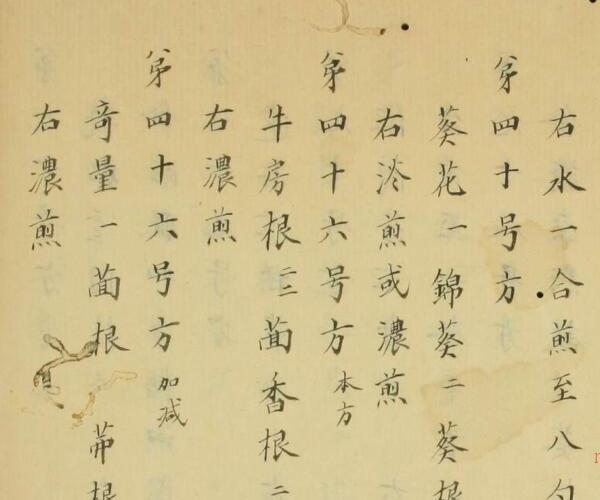 右水一合煎至八勺
第四十号方
葵花一錦葵二葵根
右淡煎或濃煎
第四十六号方 本方
牛房根三茴香根二
右濃煎
第四十六号方 加減
竒量一茴根 茀根
右濃煎